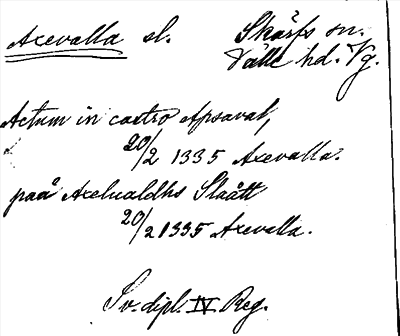 Axevalla sl. Skärfs sn.
Valle hd. Vg.
Actum in castro Apsaval,
20/2 1335 Axevalla.
paa Axelualdhs Slaått
20/2 1335 Axevalla.
Sv. dipl. IV Reg.